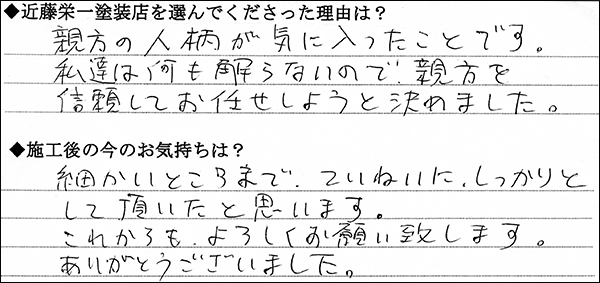 ◆近藤栄一塗装店を選んでくださった理由は？
親方の人柄が気に入ったことです。
私達は何も解らないので、親方を
信頼してお任せしようと決めました。
◆施工後の今のお気持ちは？
細かいところまで、ていねいに、しっかりと
して頂いたと思います。
これからも、よろしくお願い致します。
ありがとうございました。